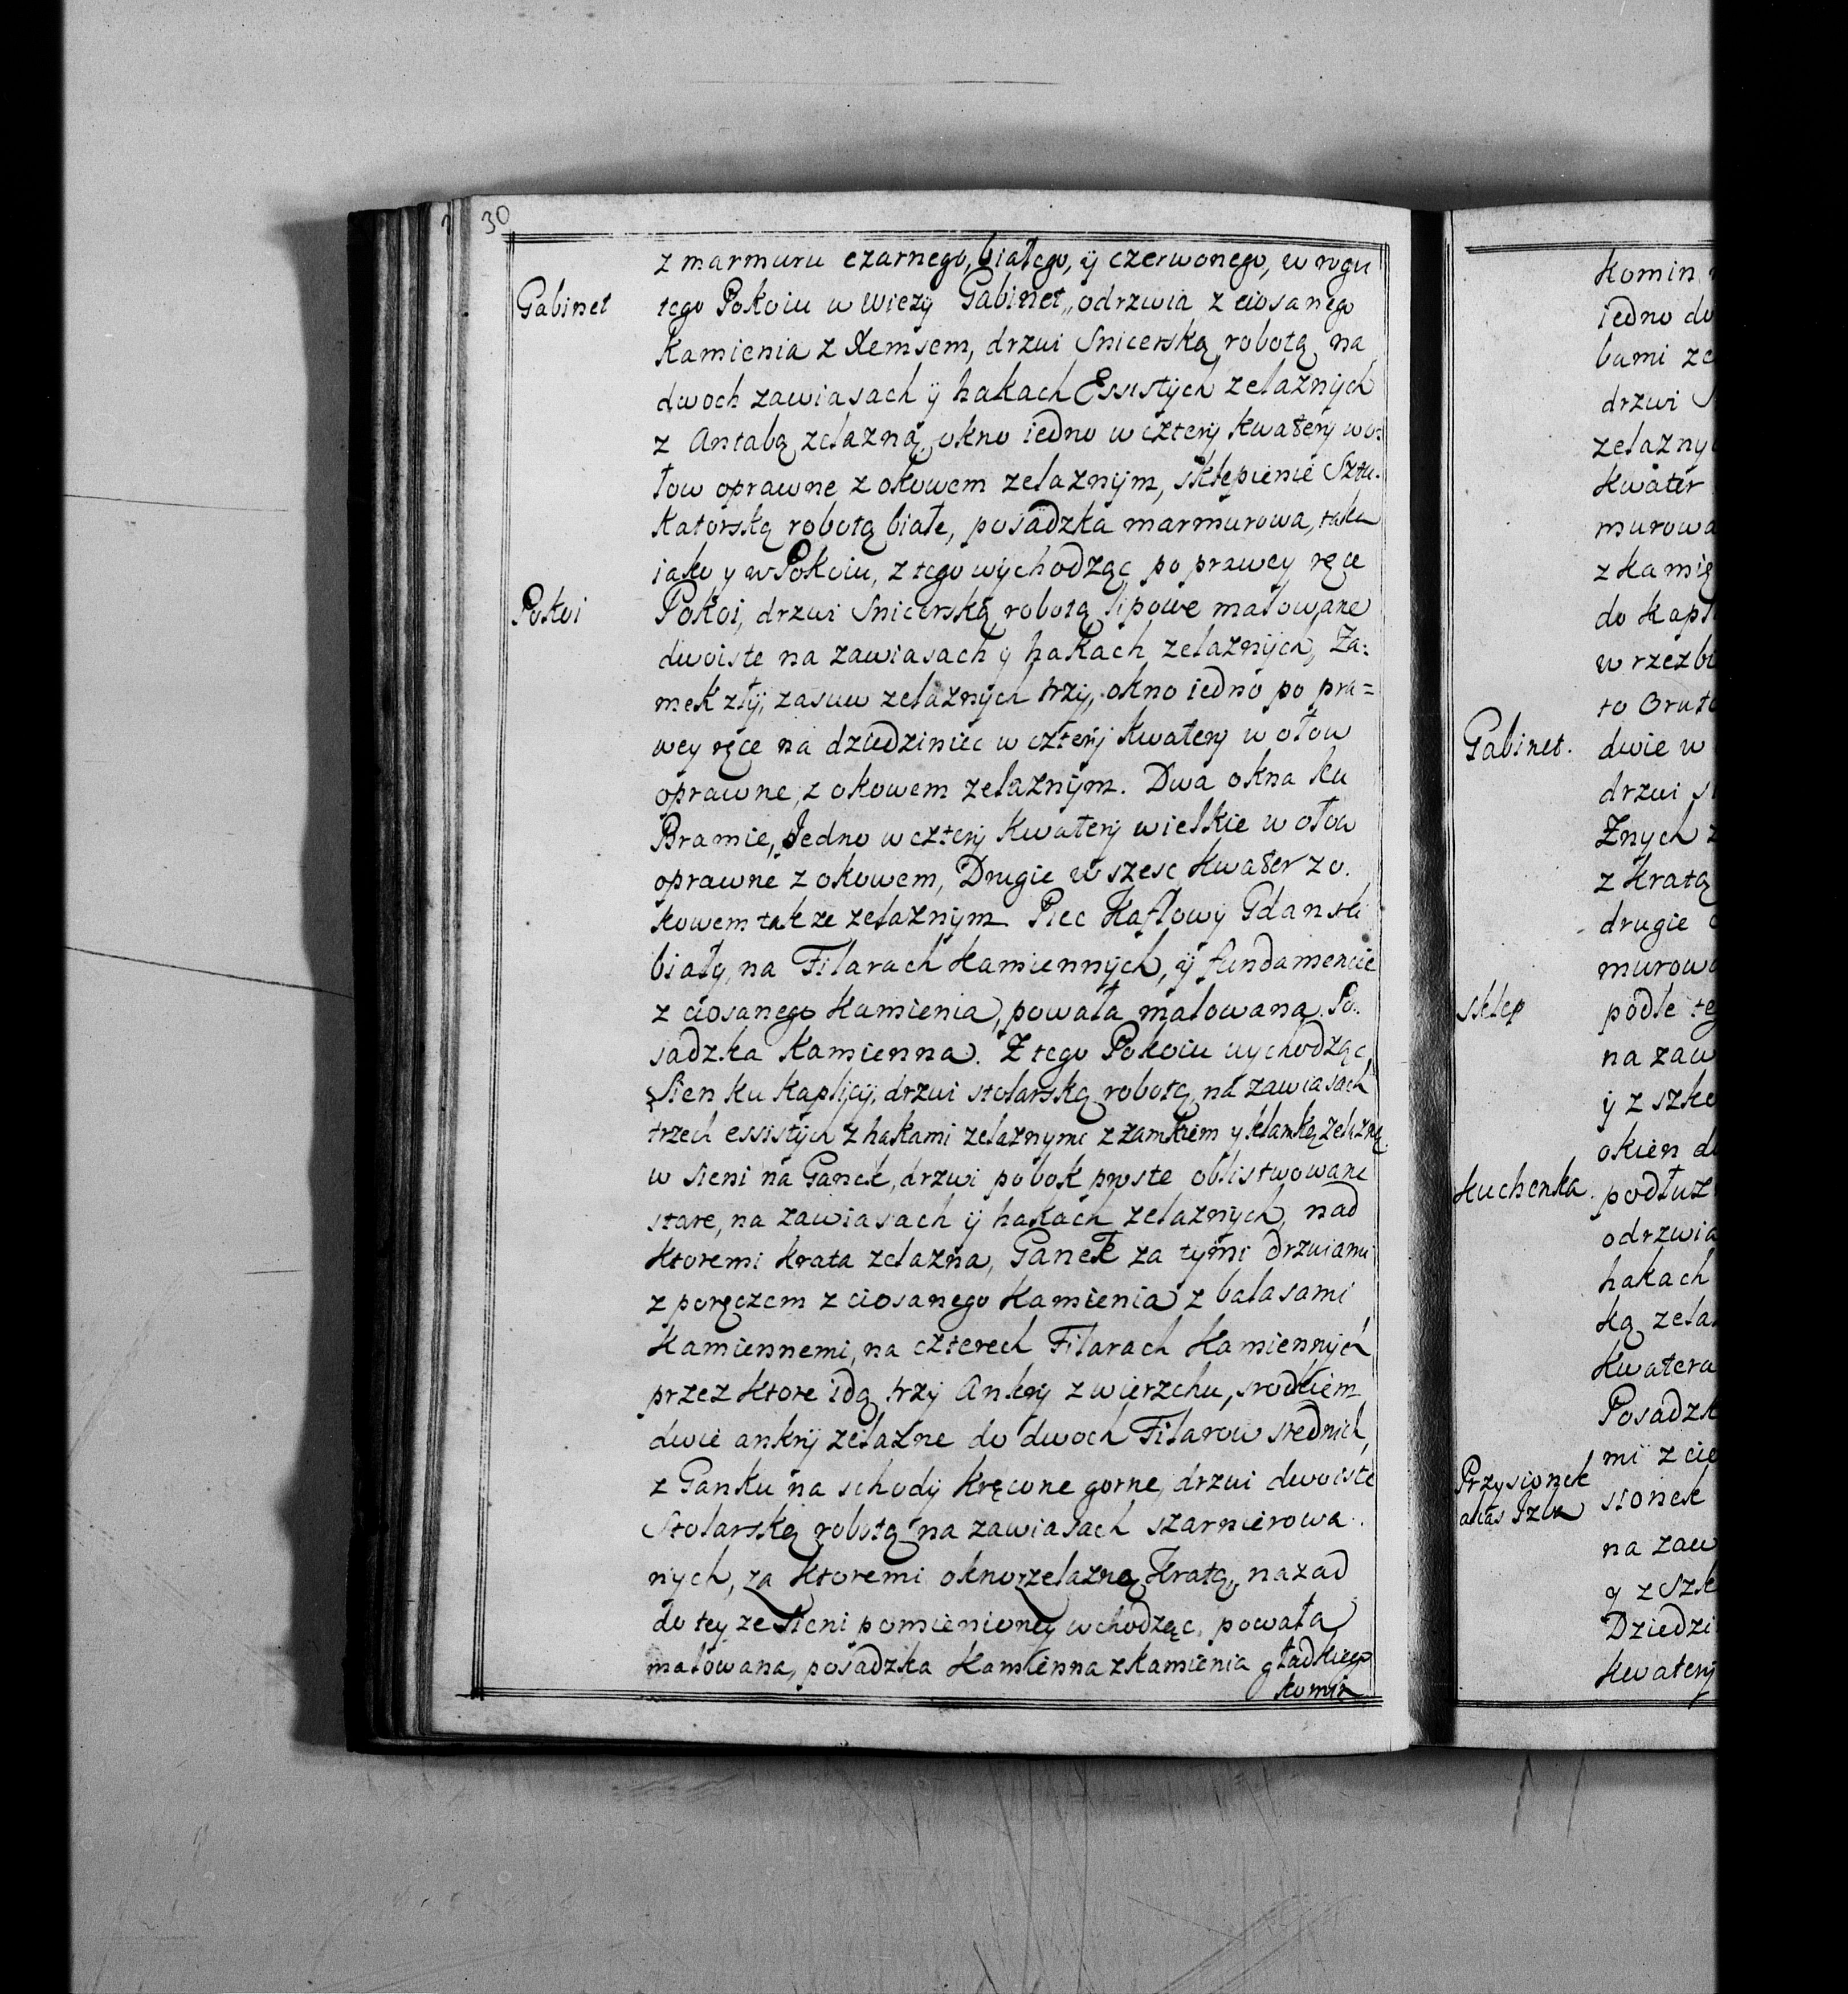 30
z marmuru czarnego, białego, ÿ czerwonego, w rogu
Gabinet
tego Pokoiu w wiezÿ Gabinet, odrzwia z ciosanego
Kamienia z Xemsem, drzwi Snicerską robotą na
dwoch zawiasach ÿ hakach Essistÿch zelaznÿch
z Antabą zelazną, okno iedno w czterÿ kwaterÿ w o:
łow oprawne z okowem zelaznÿm, sklepienie Sztu-
katorską robotą białe, posadzka marmurowa, taka
iako y w Pokoiu, z tego wÿchodząc po prawey ręce
Pokoi
Pokoi, drzwi Snicerską robotą lipowe malowane
dwoiste na zawiasach ÿ hakach zelaznÿch, Za:
mek złÿ, zasuw zelaznÿch trzÿ, okno iedno po pra=
wey ręce na dziedziniec w czterÿ kwaterÿ w ołow
oprawne, z okowem zelaznÿm. Dwa okna ku
Bramie, Jedno w czterÿ kwaterÿ wielkie w ołow
oprawne z okowem, Drugie w szesc kwater z o.
kowem takze zelaznÿm. Piec Kaflowÿ Gdanski
biały, na Filarach kamiennÿch, ÿ fundamencie
z ciosanego kamienia, powała malowana. Po-
sadzka kamienna. Z tego Pokoiu wychodząc,
Sien ku kaplicÿ, drzwi stolarską robotą, na zawiasach
trzech essistÿch z hakami zelaznymi z zamkiem y klamką zelazną.
w sieni na Ganek, drzwi pobok proste oblistwowane
stare, na zawiasach ÿ hakach zelaznych, nad
ktoremi krata zelazna, Ganek za tÿmi drzwiami
z poręczem z ciosanego kamienia z balasami
kamiennemi, na czterech Filarach kamiennÿch
przez ktore idą trzÿ Ankrÿ z wierzchu, srodkiem
dwie ankrÿ zelazne do dwoch Filarow srednich,
z Ganku na schodÿ kręcone gorne, drzwi dwoiste
Stolarską robotą na zawiasach szarnierowa-
nych, za ktoremi okno z zelazną kratą, nazad
do tey ze sieni pomienioney wchodząc, powała
malowana, posadzka kamienna z kamienia gładkiego
komin
komin
iedno do
bami ze
drzwi
zelazny
kwater
murowa
z kamie
do kapl
w rzezbi
to Orato
Gabinet.
dwie w
drzwi
Znych
z kratą
drugie
murow
sklep
podle te
na zaw
ÿ z szk
okien d
kuchenka.
podłuz
odrzwia
hakach
ką zela
kwatera
Posadzk
mi z cie
Przysionek
alias Izba
sionek
na zaw
y z Sz
Dziedzi
kwaterÿ